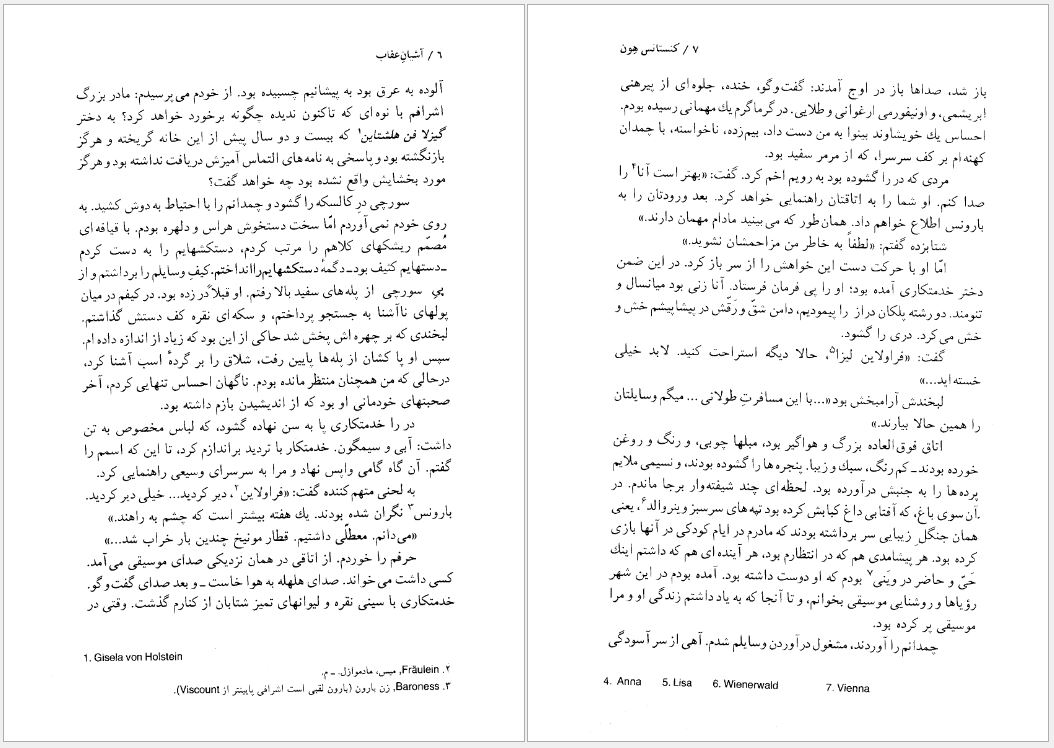 ۶ / آشیانِ عقاب
آلوده به عرق بود به پیشانیم چسبیده بود. از خودم می‌پرسیدم: مادر بزرگ
اشرافم با نوه‌ای که تاکنون ندیده چگونه برخورد خواهد کرد؟ به دختر
گیزلا فن هلشتاین۱ که بیست و دو سال پیش از این خانه گریخته و هرگز
بازنگشته بود و پاسخی به نامه‌های التماس آمیزش دریافت نداشته بود و هرگز
مورد بخشایش واقع نشده بود چه خواهد گفت؟
سورچی در کالسکه را گشود و چمدانم را با احتیاط به دوش کشید. به
روی خودم نمی‌آوردم امّا سخت دستخوش هراس و دلهره بودم. با قیافه‌ای
مُصمّم ریشکهای کلاهم را مرتب کردم، دستکشهایم را به دست کردم
ـ دستهایم کثیف بود ـ دگمهٔ دستکشهایم را انداختم. کیفِ وسایلم را برداشتم و از
پیِ سورچی از پله‌های سفید بالا رفتم. او قبلاً در زده بود. در کیفم در میان
پولهای ناآشنا به جستجو پرداختم، و سکه‌ای نقره کف دستش گذاشتم.
لبخندی که بر چهره‌اش پخش شد حاکی از این بود که زیاد از اندازه داده‌ام.
سپس او پا کشان از پله‌ها پایین رفت، شلاق را بر گردهٔ اسب آشنا کرد،
درحالی که من همچنان منتظر مانده بودم. ناگهان احساس تنهایی کردم، آخر
صحبتهای خودمانی او بود که از اندیشیدن بازم داشته بود.
در را خدمتکاری پا به سن نهاده گشود، که لباس مخصوص به تن
داشت: آبی و سیمگون. خدمتکار با تردید براندازم کرد، تا این که اسمم را
گفتم. آن گاه گامی واپس نهاد و مرا به سرسرای وسیعی راهنمایی کرد.
به لحنی متهم‌کننده گفت: «فراولاین۲، دیر کردید... خیلی دیر کردید.
بارونس۳ نگران شده بودند. یك هفته بیشتر است که چشم به راهند.»
«می‌دانم. معطلّی داشتیم. قطار مونیخ چندین بار خراب شد...»
حرفم را خوردم. از اتاقی در همان نزدیکی صدای موسیقی می‌آمد.
کسی داشت می‌خواند. صدای هلهله به هوا خاست ـ و بعد صدای گفت‌وگو.
خدمتکاری با سینی نقره و لیوانهای تمیز شتابان از کنارم گذشت. وقتی در
1. Gisela von Holstein
۲. Fräulein, میس، مادموازل. ـ م.
۳. Baroness, زن بارون (بارون لقبی است اشرافی پایینتر از Viscount).
۷ / کنستانس هِون
باز شد، صداها باز در اوج آمدند: گفت‌وگو، خنده، جلوه‌ای از پیرهنی
ابریشمی، و اونیفورمی ارغوانی و طلایی. در گرماگرم یك مهمانی رسیده بودم.
احساس یك خویشاوند بینوا به من دست داد، بیم‌زده، ناخواسته، با چمدان
کهنه‌ام بر کف سرسرا، که از مرمر سفید بود.
مردی که در را گشوده بود به رویم اخم کرد. گفت: «بهتر است آنا۴ را
صدا کنم. او شما را به اتاقتان راهنمایی خواهد کرد. بعد ورودتان را به
بارونس اطلاع خواهم داد. همان‌طور که می‌بینید مادام مهمان دارند.»
شتابزده گفتم: «لطفاً به خاطر من مزاحمشان نشوید.»
امّا او با حرکت دست این خواهش را از سر باز کرد. در این ضمن
دختر خدمتکاری آمده بود؛ او را پی فرمان فرستاد. آنا زنی بود میانسال و
تنومند. دو رشته پلکان دراز را پیمودیم، دامن شقّ و رَقّش در پیشاپیشم خش و
خش می‌کرد. دری را گشود.
گفت: «فراولاین لیزا۵، حالا دیگه استراحت کنید. لابد خیلی
خسته‌اید...»
لبخندش آرامبخش بود «...با این مسافرتِ طولانی ... میگم وسایلتان
را همین حالا بیارند.»
اتاق فوق‌العاده بزرگ و هواگیر بود، مبلها چوبی، و رنگ و روغن
خورده بودند ـ کم رنگ، سبك و زیبا. پنجره‌ها را گشوده بودند، و نسیمی ملایم
پرده‌ها را به جنبش درآورده بود. لحظه‌ای چند شیفته‌وار برجا ماندم. در
آن سوی باغ، که آفتابی داغ کبابش کرده بود تپه‌های سرسبز وینروالد۶، یعنی
همان جنگل زیبایی سر برداشته بودند که مادرم در ایام کودکی در آنها بازی
کرده بود. هر پیشامدی هم که در انتظارم بود، هر آینده‌ای هم که داشتم اینك
حَیّ و حاضر در وینی۷ بودم که او دوست داشته بود. آمده بودم در این شهر
رؤیاها و روشنایی موسیقی بخوانم، و تا آنجا که به یاد داشتم زندگی او و مرا
موسیقی پر کرده بود.
چمدانم را آوردند، مشغول درآوردن وسایلم شدم. آهی از سر آسودگی
4. Anna 5. Lisa 6. Wienerwald 7. Vienna